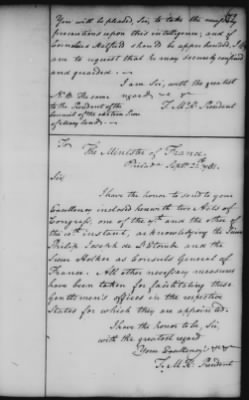 You will be pleased, Sir, to take the
precautions upon this intelligence, and if
Cornelius Hatfield should be apprehended, I
am to request that he may be securely confined
and guarded.
I am Sir, with the greatest
N.B. The same regard &c &c
to the President of the T. M.K. President
Council of the
of
To
The Minister of France
Philada Sept.
Sir
I have the honor to send to your
Excellency inclosed herewith two Acts of
Congress, one of the 7th and the other of
the 10th instant, acknowledging the Sieur
Philip Joseph de L'Etombe and the
Sieur Holker as Consuls General of
France. All other necessary measures
have been taken for facilitating these
Gentlemen's offices in the respective
States for which they are appointed.
I have the honor to be, Sir,
with the greatest regard
Your Excellency's &c &c
T. M.K. President